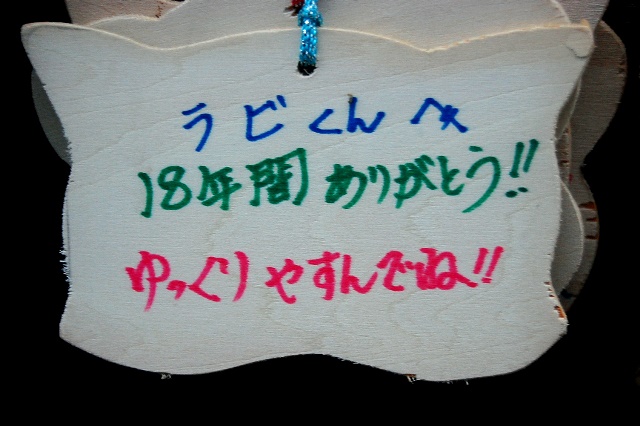 ラビくんへ
18年間ありがとう!!
ゆっくりやすんでね!!